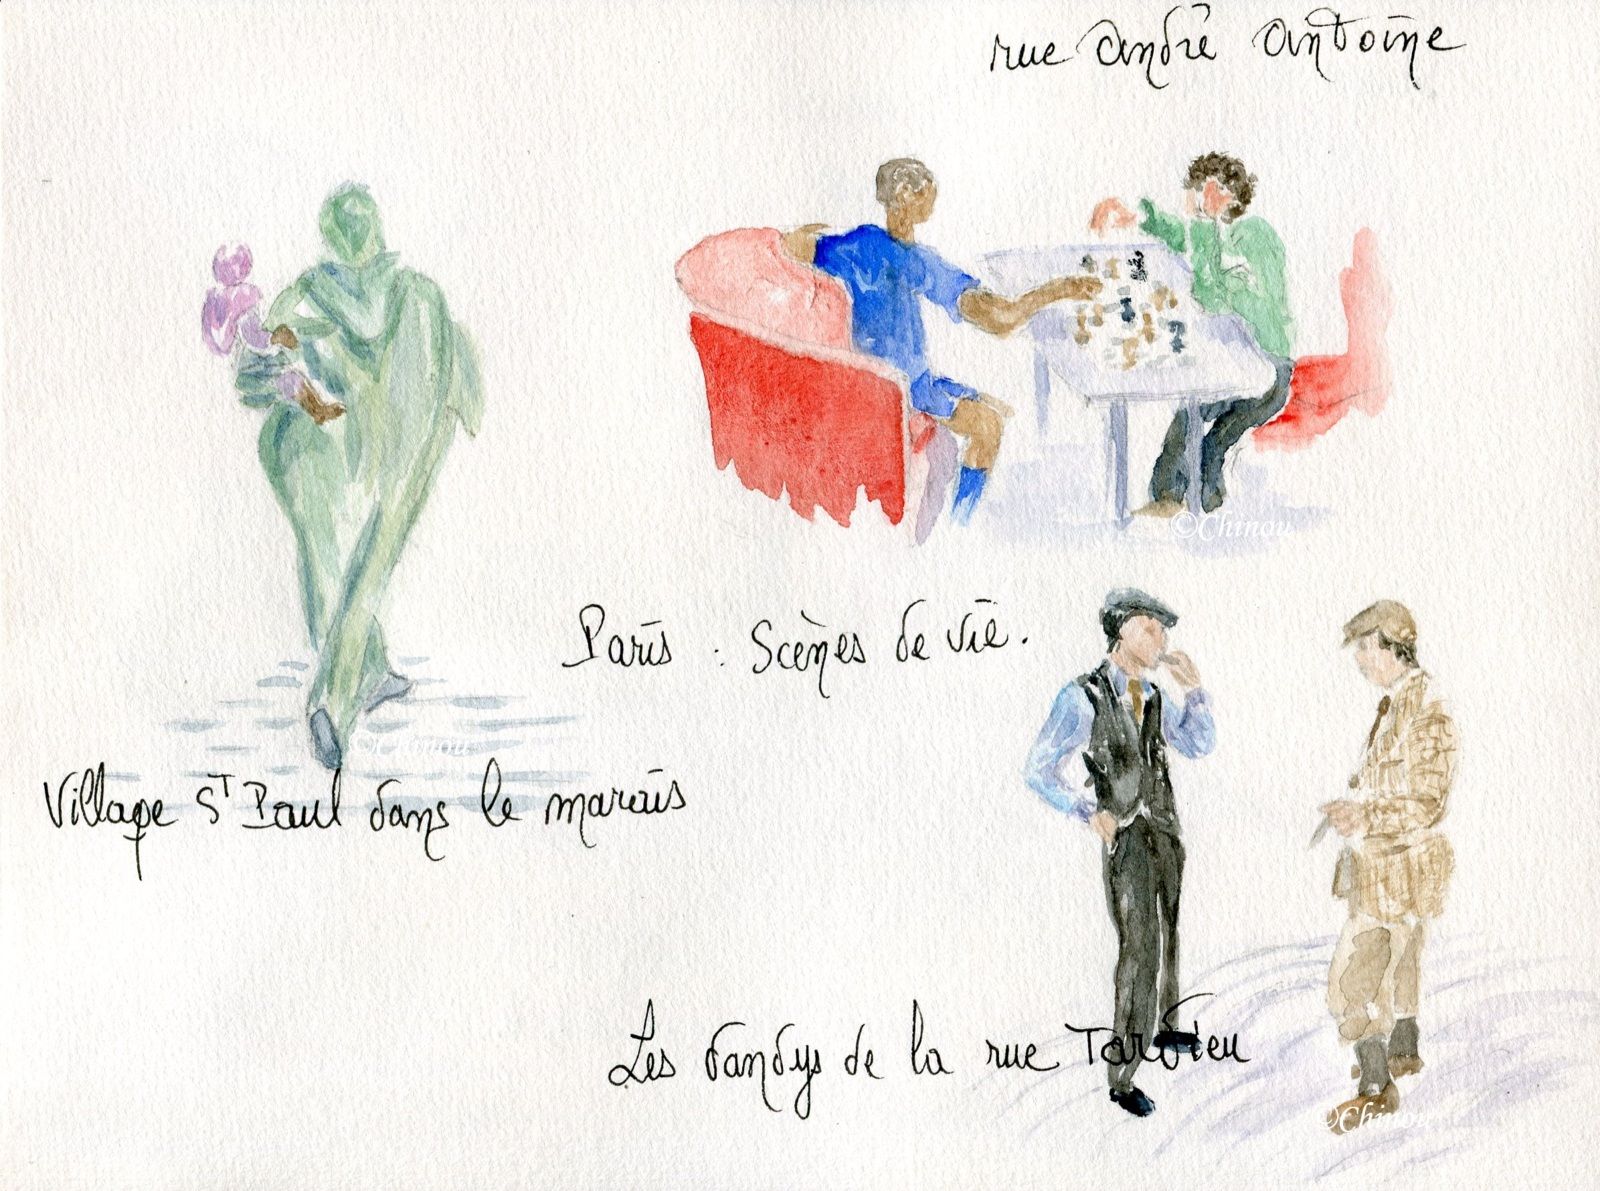 rue André Antoine
©Chinou
Paris : Scènes de vie.
©Chinou
Village St Paul dans le marais
Les dandys de la rue Tardieu
©Chinou